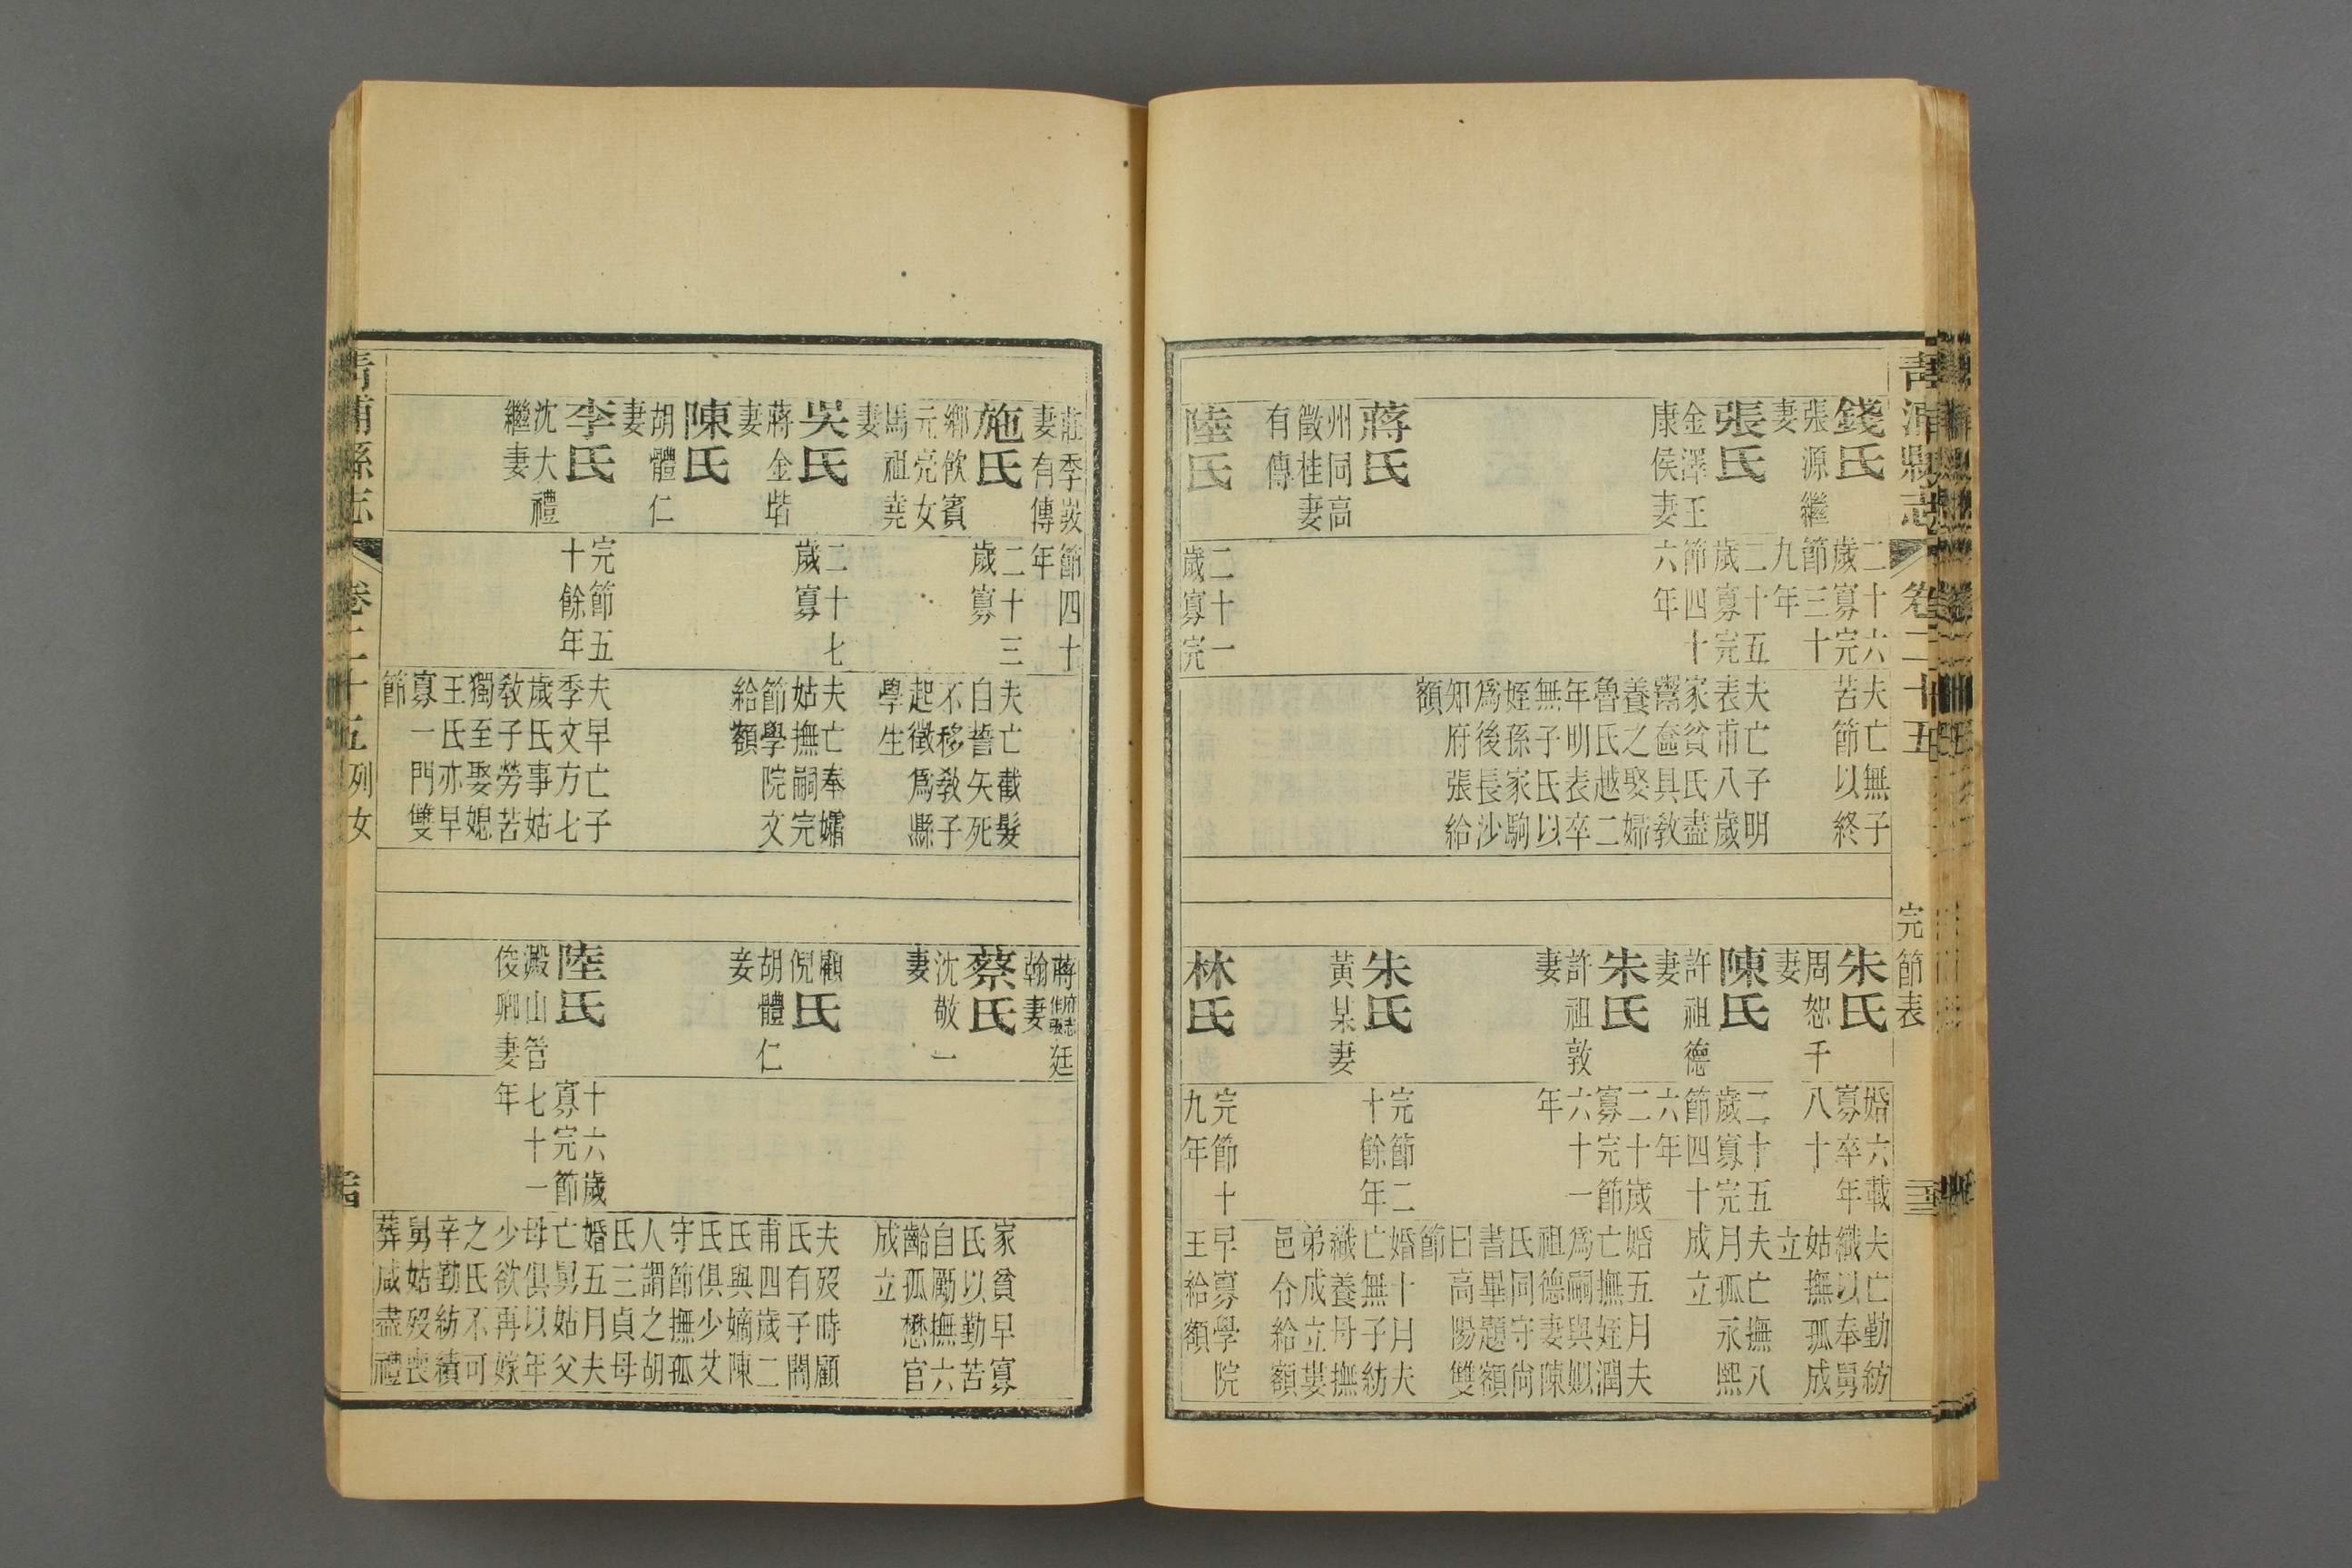 青浦縣志
卷二十五
完節表
錢氏
張源繼
妻
二十六
歲寡完
節三十
九年
夫亡無子
苦節以終
張氏
金澤王
康侯妻
二十五
歲寡完
節四十
六年
夫亡子明
表甫八歲
家貧氏盡
鬻奩具敎
養之娶婦
魯氏越二
年明表卒
無子氏以
姪孫家駒
爲後長沙
知府張給
額
蔣氏
州同高
徵桂妻
有傳
陸氏
二十一
歲寡完
朱氏
周恕千
妻
婚六載
寡卒年
八十
夫亡勤紡
織以奉舅
姑撫孤成
立
陳氏
許祖德
妻
二十五
歲寡完
節四十
六年
夫亡撫八
月孤永熙
成立
朱氏
許祖敦
妻
二十歲
寡完節
六十一
年
婚五月夫
亡撫姪潤
爲嗣與姒
祖德妻陳
氏同守尙
書畢題額
曰高陽雙
節
朱氏
黃某妻
完節二
十餘年
婚十月夫
亡無子紡
織養母撫
弟成立婁
邑令給額
林氏
完節十
九年
早寡學院
王給額
莊季敭
妻有傳
節四十
年
施氏
鄉飮賓
元亮女
馬祖堯
妻
二十三
歲寡
夫亡截髮
自誓矢死
不移敎子
起徵爲縣
學生
吳氏
蔣金堦
妻
二十七
歲寡
夫亡奉孀
姑撫嗣完
節學院文
給額
陳氏
胡體仁
妻
李氏
沈大禮
繼妻
完節五
十餘年
夫早亡子
季文方七
歲氏事姑
敎子勞苦
獨至娶媳
王氏亦早
寡一門雙
節
蔣府志作張廷
翰妻
蔡氏
沈敬一
妻
家貧早寡
氏以勤苦
自勵撫六
齡孤懋官
成立
顧氏
倪
胡體仁
妾
夫歿時顧
氏有子闓
甫四歲二
氏與嫡陳
氏俱少艾
守節撫孤
人謂之胡
氏三貞母
陸氏
澱山管
俊卿妻
十六歲
寡完節
七十一
年
婚五月夫
亡舅姑父
母俱以年
少欲再嫁
之氏不可
辛勤紡績
舅姑歿喪
葬咸盡禮
青浦縣志
卷二十五
列女